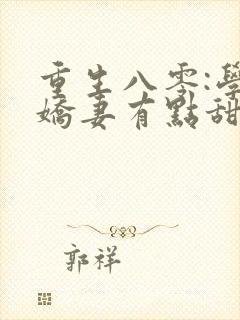 重生八零:學
嬌妻有點甜
郭祥